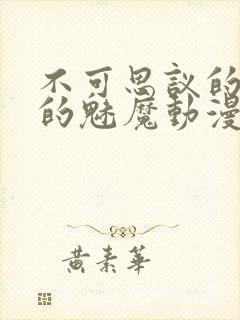 不可思议的
的魅魔動漫
黄素華